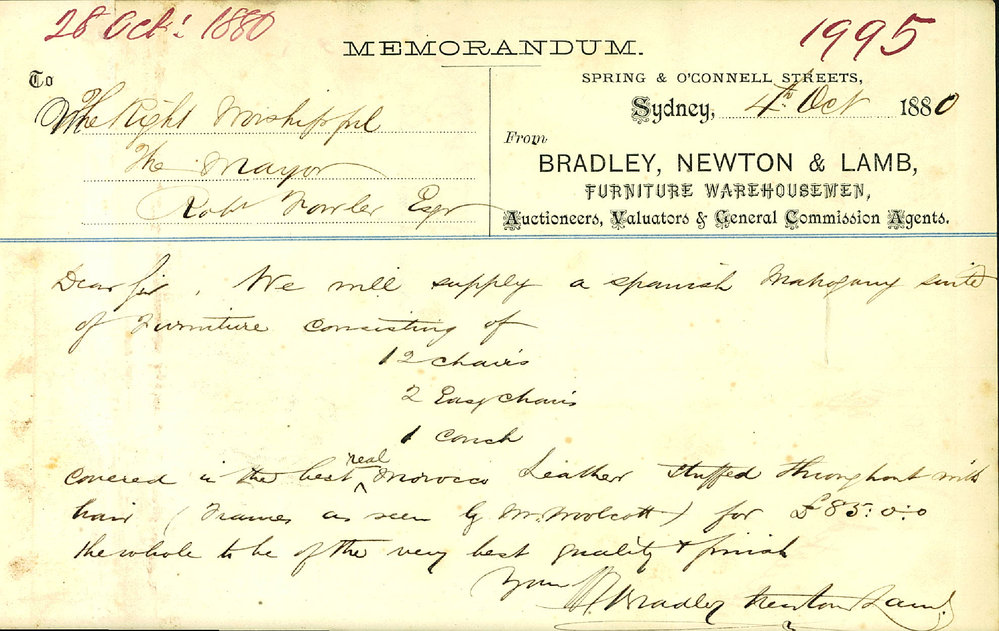 28 Oct: 1880
1995
MEMORANDUM.
To
The Right Worshipful
The Mayor
Robt Fowler Esqr
SPRING & O'CONNELL STREETS,
Sydney, 4th Oct 1880
From
BRADLEY, NEWTON & LAMB,
FURNITURE WAREHOUSEMEN,
Auctioneers, Valuators & General Commission Agents.
Dear Sir, We will supply a spanish Mahogany suite
of Furniture consisting of
12 chairs
2 Easy chairs
1 couch
covered in the best real Morocco Leather stuffed throughout with
hair (Frames as seen by Mr. Woolcott) for £85:0:0
the whole to be of the very best quality & finish
Yours
Bradley Newton Lamb